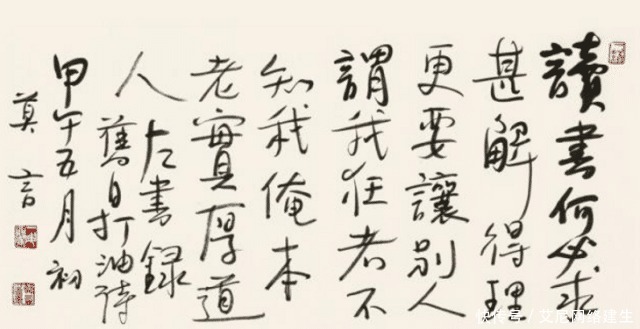 讀書何必求
甚解得理
更要讓別人
謂我狂者不
知我俺本
老實厚道
人
左書錄
舊自打油詩
甲午五月初
莫言
快传号 /